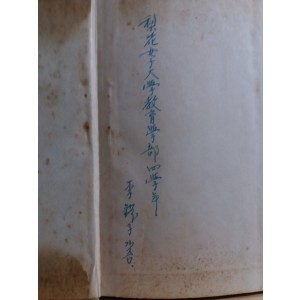 梨花女子大學敎育學部 四學年
李 子